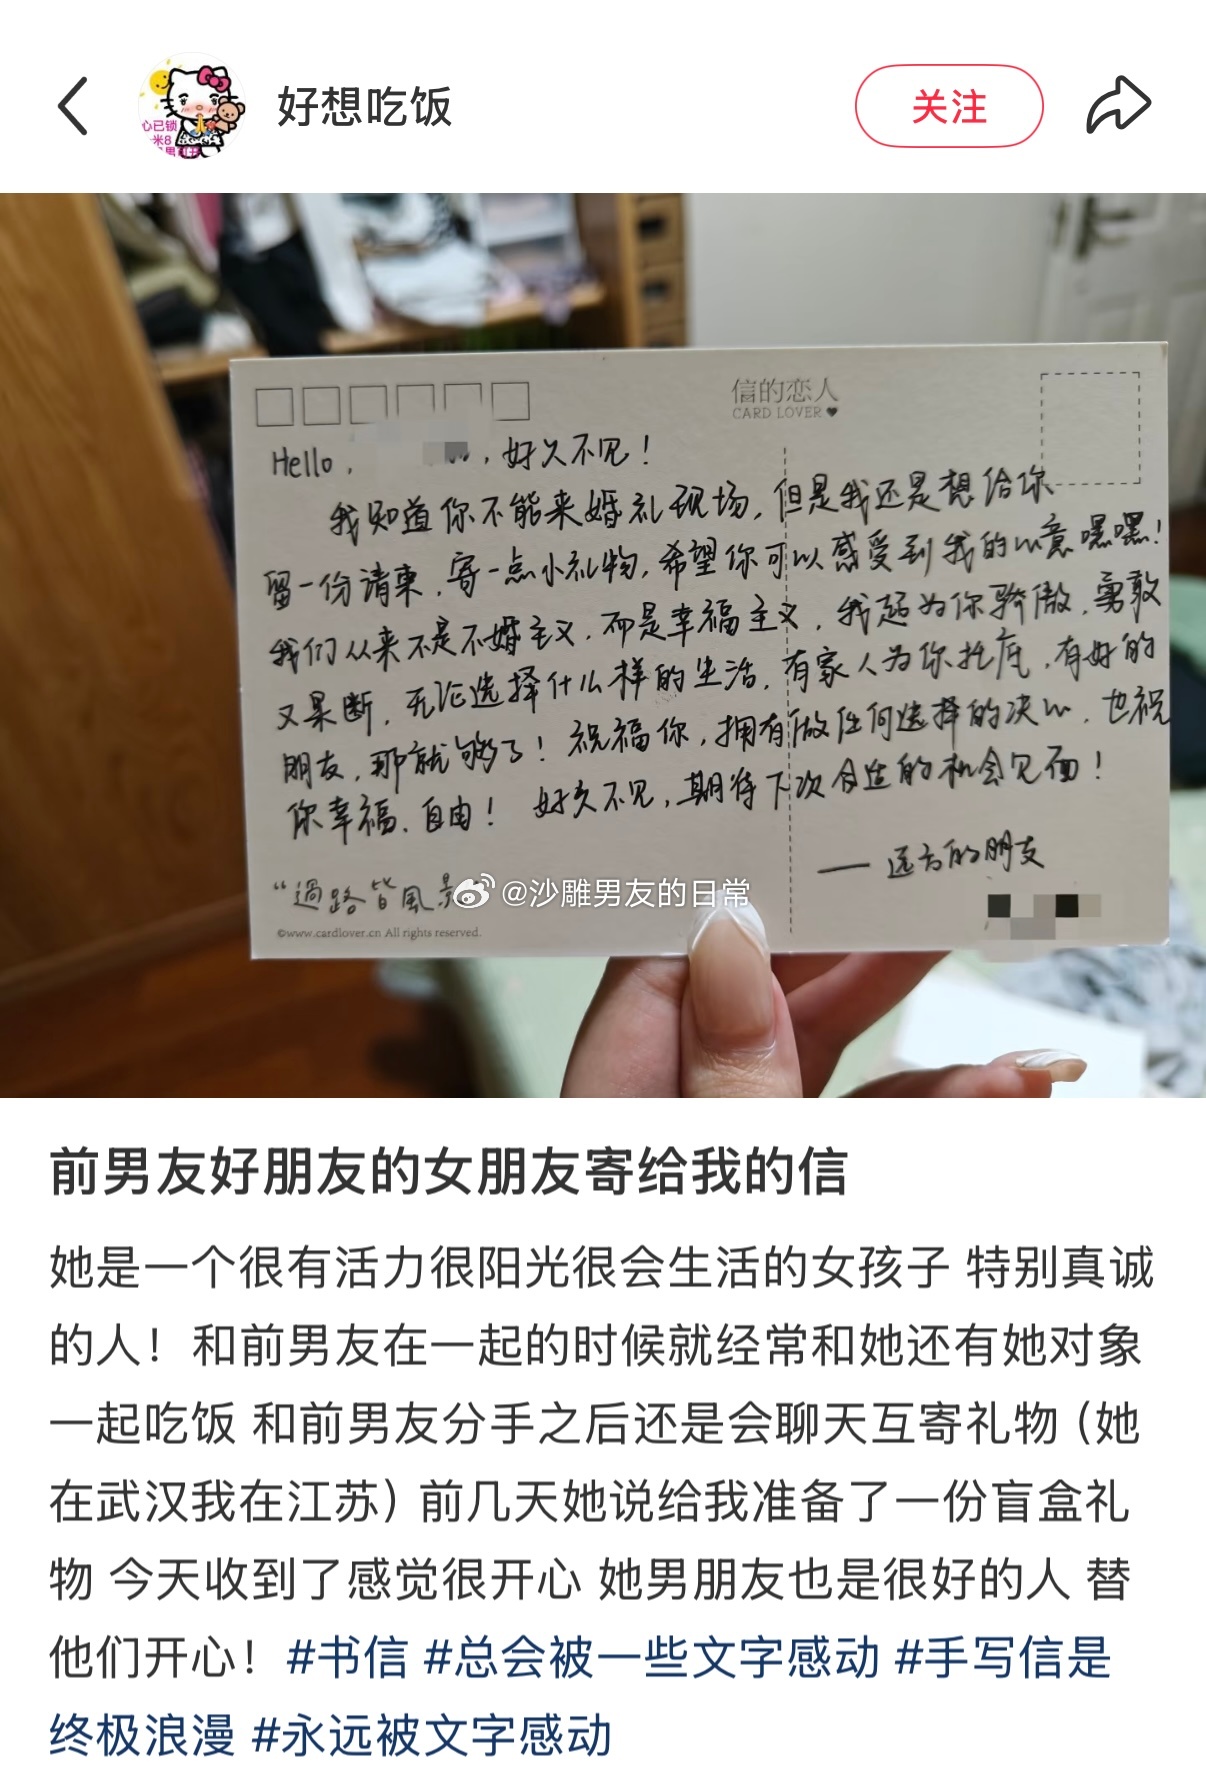 好想吃饭
关注
心已锁
米8
信的恋人
CARD LOVER
Hello, ，好久不见！
我知道你不能来婚礼现场，但是我还是想给你
留一份请柬，寄一点小礼物，希望你可以感受到我的心意嘿嘿！
我们从来不是不婚主义，而是幸福主义，我超为你骄傲，勇敢
又果断，无论选择什么样的生活，有家人为你托底，有好的
朋友，那就够了！祝福你，拥有做任何选择的决心，也祝
你幸福、自由！好久不见，期待下次合适的机会见面！
——远方的朋友
“過路皆風景
@沙雕男友的日常
©www.cardlover.cn All rights reserved.
前男友好朋友的女朋友寄给我的信
她是一个很有活力很阳光很会生活的女孩子 特别真诚
的人！和前男友在一起的时候就经常和她还有她对象
一起吃饭 和前男友分手之后还是会聊天互寄礼物（她
在武汉我在江苏）前几天她说给我准备了一份盲盒礼
物 今天收到了感觉很开心 她男朋友也是很好的人 替
他们开心！#书信 #总会被一些文字感动 #手写信是
终极浪漫 #永远被文字感动